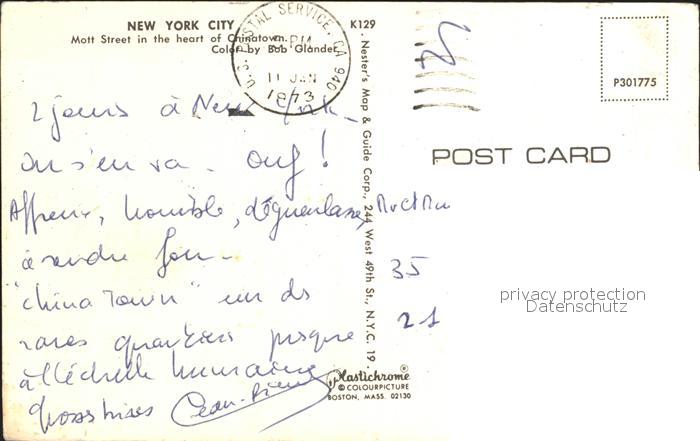 NEW YORK CITY
Mott Street in the heart of Chinatown.
Color by Bob Glander
K129
U.S. POSTAL SERVICE, CA 940
PM
11 JAN
1973
P301775
POST CARD
Nester's Map & Guide Corp., 244 West 49th St., N.Y.C. 19
2 jours à New York -
on s'en va - ouf !
Affreux, horrible, dégueulasse,
à rendre fou -
"China Town" un des
rares quartiers presque
à l'échelle humaine
Grosses bises Jean-Pierre
35
21
privacy protection
Datenschutz
Plastichrome®
© COLOURPICTURE
BOSTON, MASS. 02130